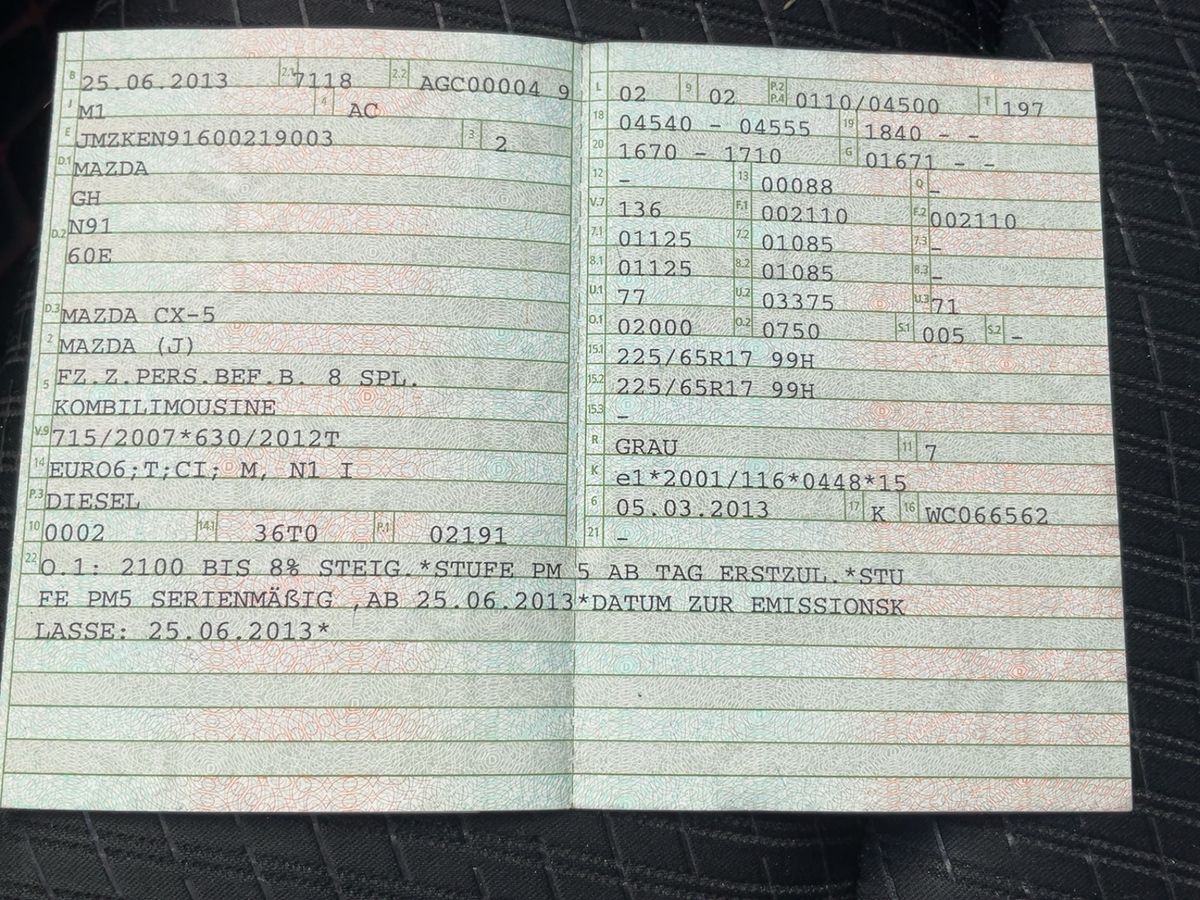 B 25.06.2013 2.1 7118 2.2 AGC00004 9
J M1 4 AC
E JMZKEN91600219003 3 2
D.1 MAZDA
GH
D.2 N91
60E
D.3 MAZDA CX-5
2 MAZDA (J)
5 FZ.Z.PERS.BEF.B. 8 SPL.
KOMBILIMOUSINE
V.9 715/2007*630/2012T
14 EURO6;T;CI; M, N1 I
P.3 DIESEL
10 0002 14.1 36T0 P.1 02191
L 02 9 02 P.2 P.4 0110/04500 T 197
18 04540 - 04555 19 1840 - -
20 1670 - 1710 G 01671 - -
12 - 13 00088 Q -
V.7 136 F.1 002110 F.2 002110
7.1 01125 7.2 01085 7.3 -
8.1 01125 8.2 01085 8.3 -
U.1 77 U.2 03375 U.3 71
O.1 02000 O.2 0750 S.1 005 S.2 -
15.1 225/65R17 99H
15.2 225/65R17 99H
15.3 -
R GRAU 11 7
K e1*2001/116*0448*15
6 05.03.2013 17 K 16 WC066562
21 -
22 O.1: 2100 BIS 8% STEIG.*STUFE PM 5 AB TAG ERSTZUL.*STU
FE PM5 SERIENMÄßIG ,AB 25.06.2013*DATUM ZUR EMISSIONSK
LASSE: 25.06.2013*